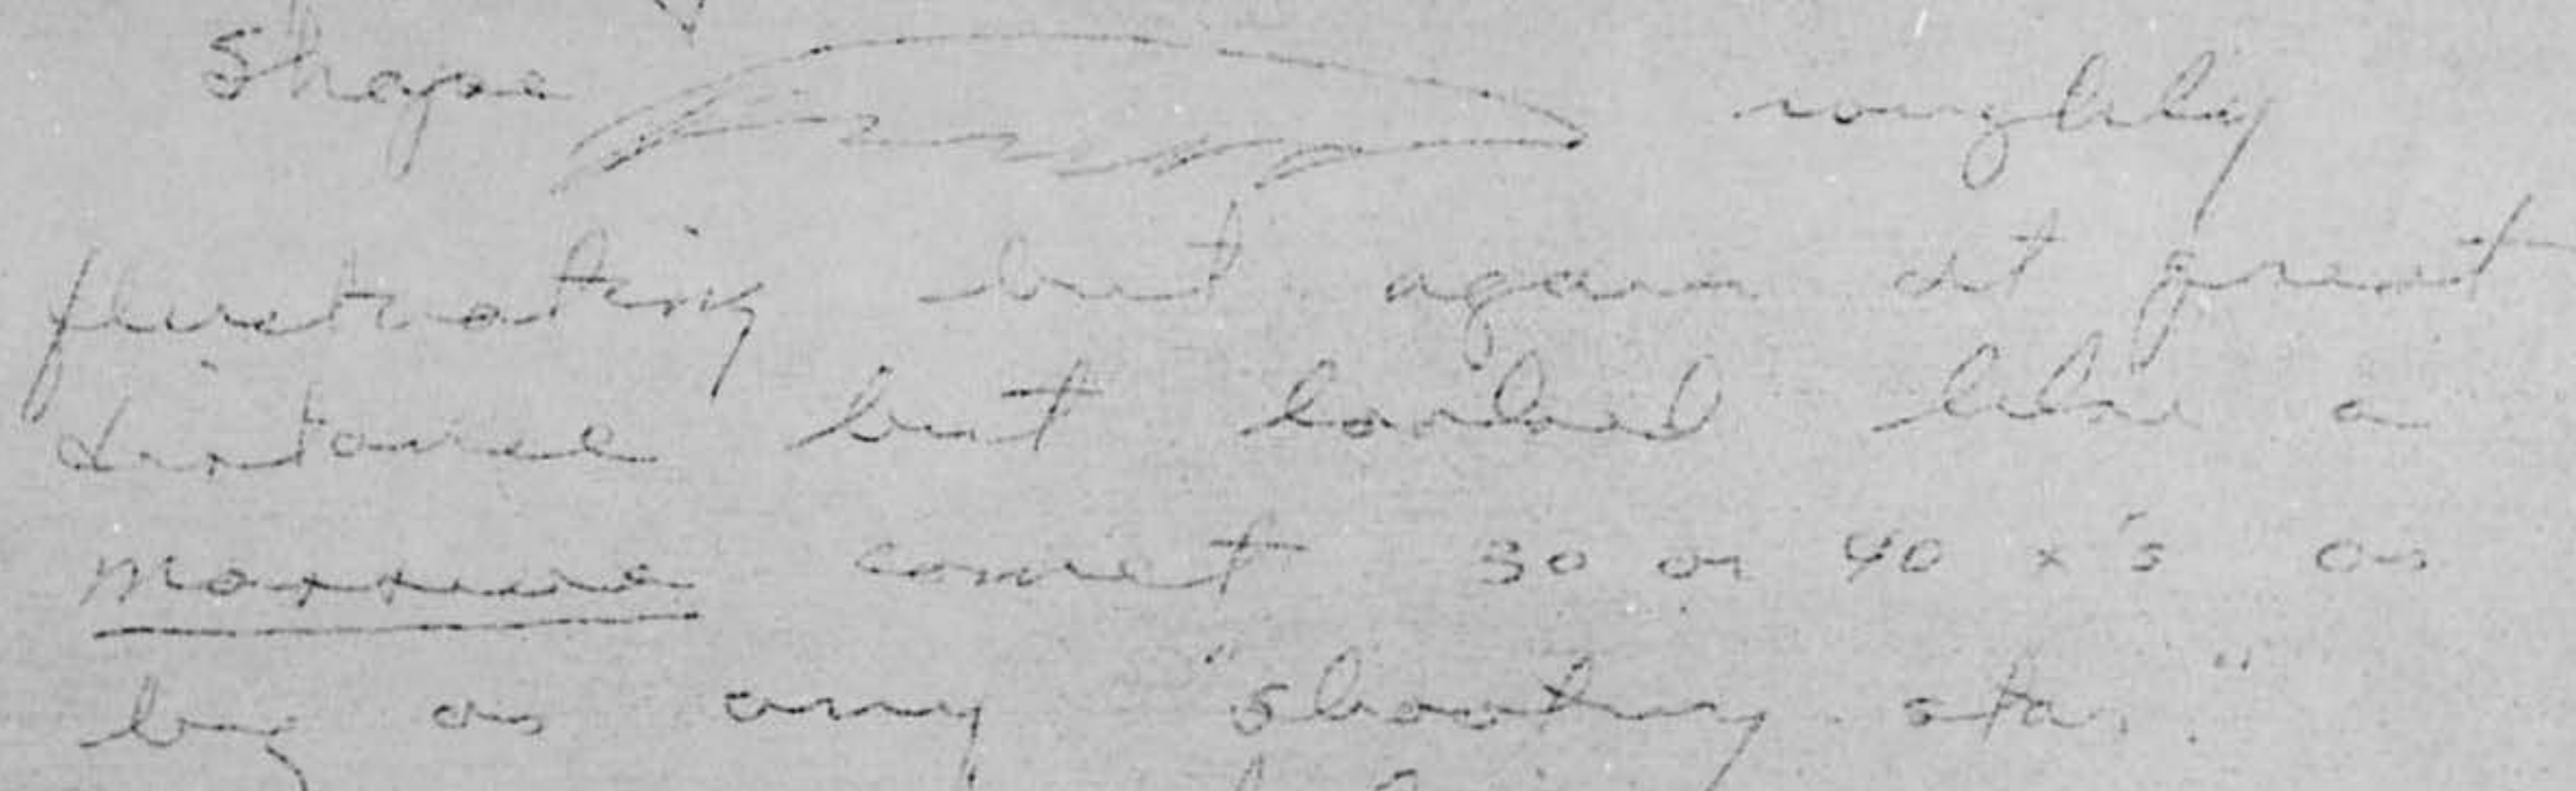 Shape roughly
fluctuating but again at great
distance but looked like a
massive comet 30 or 40 x's as
big as any "shooting star."